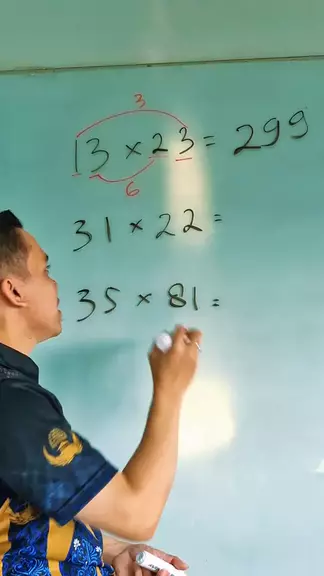 3
13 × 23 = 299
6
31 × 22 =
35 × 81 =